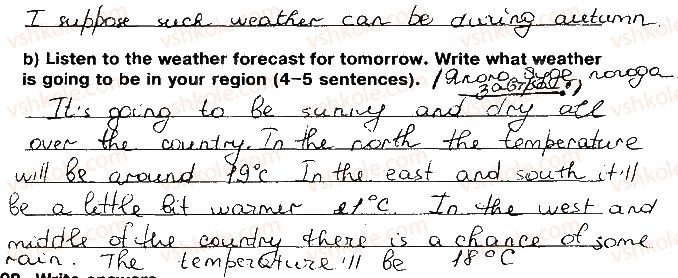 I suppose such weather can be during autumn.
b) Listen to the weather forecast for tomorrow. Write what weather
is going to be in your region (4–5 sentences). (Якого буде погода
завтра.)
It's going to be sunny and dry all
over the country. In the north the temperature
will be around 19°C In the east and south it'll
be a little bit warmer 21°C. In the west and
middle of the country there is a chance of some
rain. The temperature'll be 18°C
Write answers